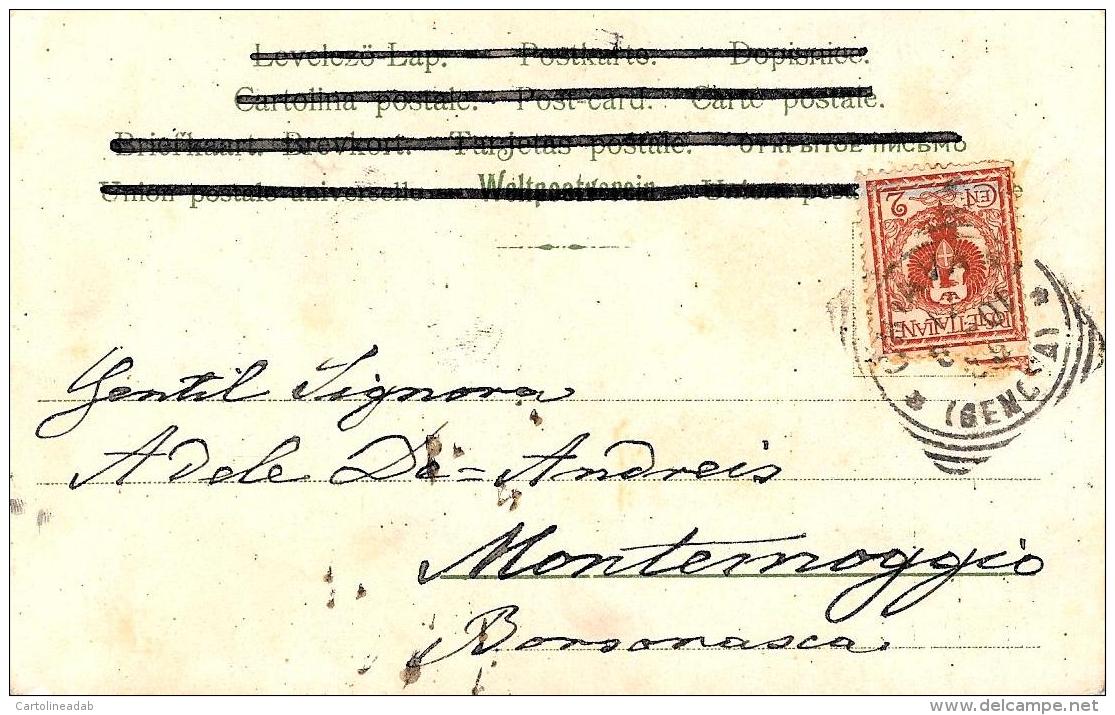 Levelező-Lap. Postkarte. Dopisnice.
Cartolina postale. Post-card. Carte postale.
Briefkaart. Brevkort. Tarjetas postale. ОТКРЫТОЕ ПИСЬМО
Union postale universelle Weltpostverein
CEN. 2
POSTE ITALIANE
(GENOVA)
Gentil Signora
Adele De=Andreis
Montemoggio
Borsonasca
Cartolineadab
www.delcampe.net